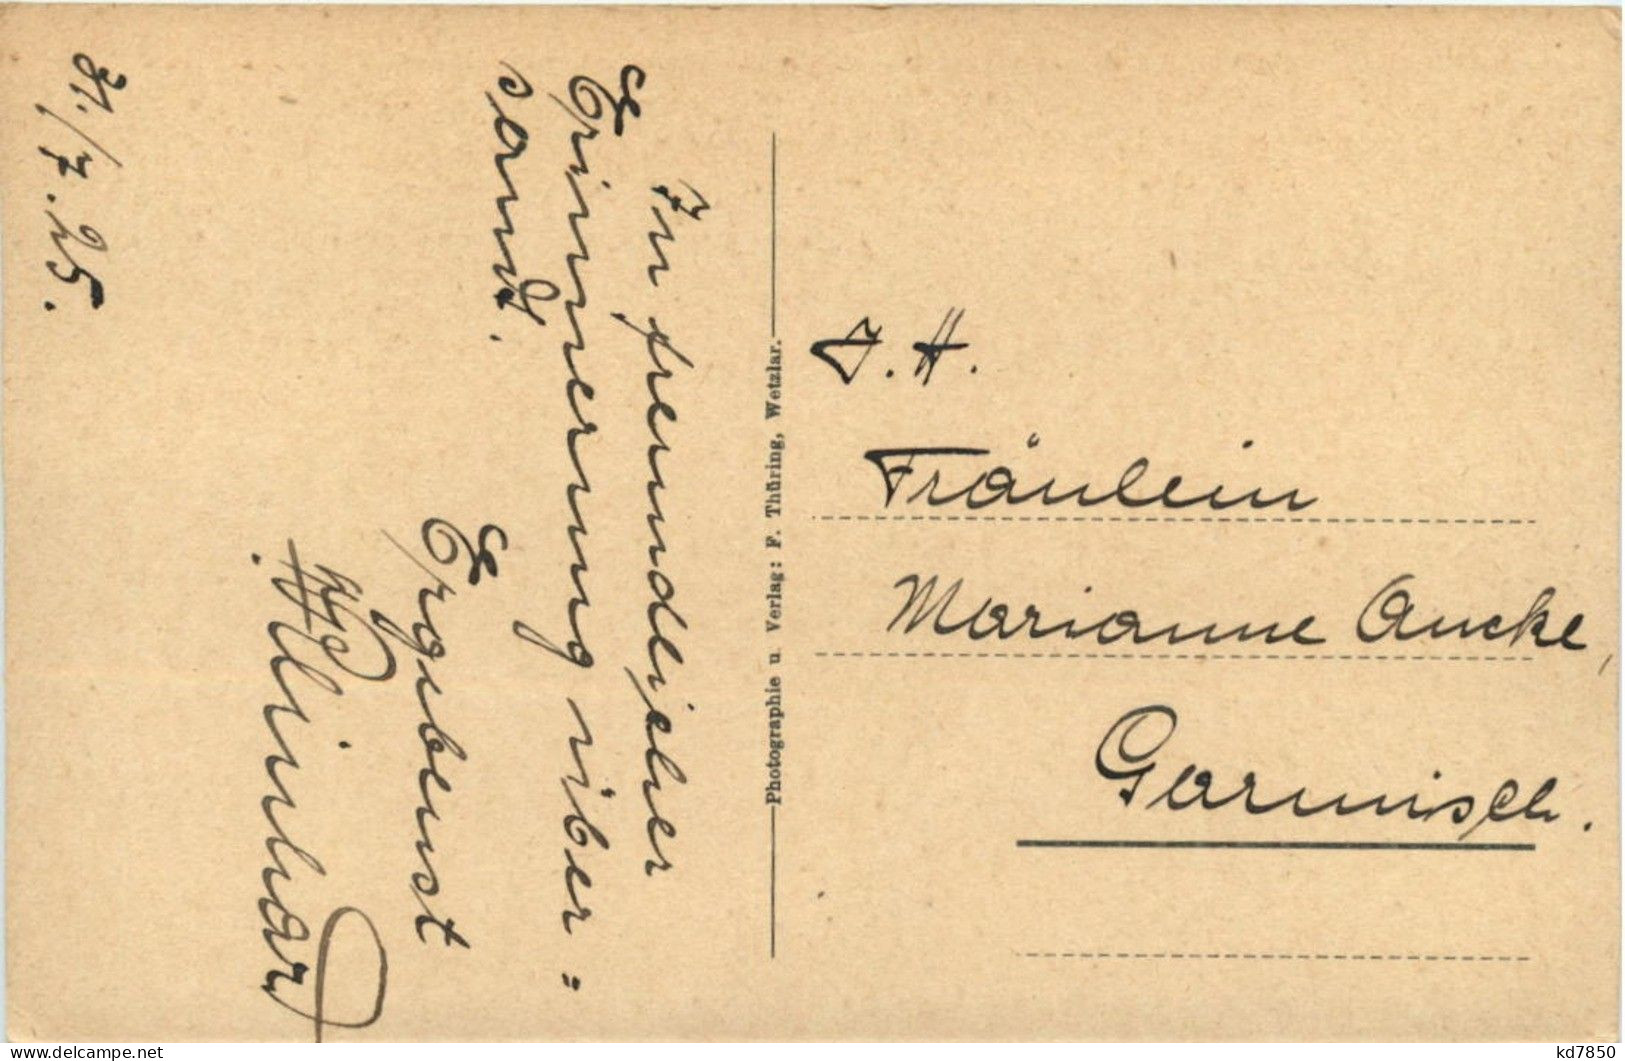 In freundlicher
Erinnerung über=
sandt.
Ergebenst
31./7.25.
Photographie u. Verlag: F. Thüring, Wetzlar.
J. H.
Fräulein
Marianne Aucke,
Garmisch.
kd7850